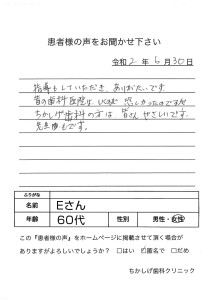 患者様の声をお聞かせ下さい
令和2年6月30日
指導もしていただき、ありがたいです
昔の歯科医院は、いつも恐しかったのですが
ちかしげ歯科の方は、皆さんやさしいです。
先生もです。
ふりがな
名前 Eさん
年齢 60代 性別 男性・女性
この『患者様の声』をホームページに掲載させて頂く場合が
ありますがよろしいでしょうか？ □はい ☑匿名で □だめ
ちかしげ歯科クリニック